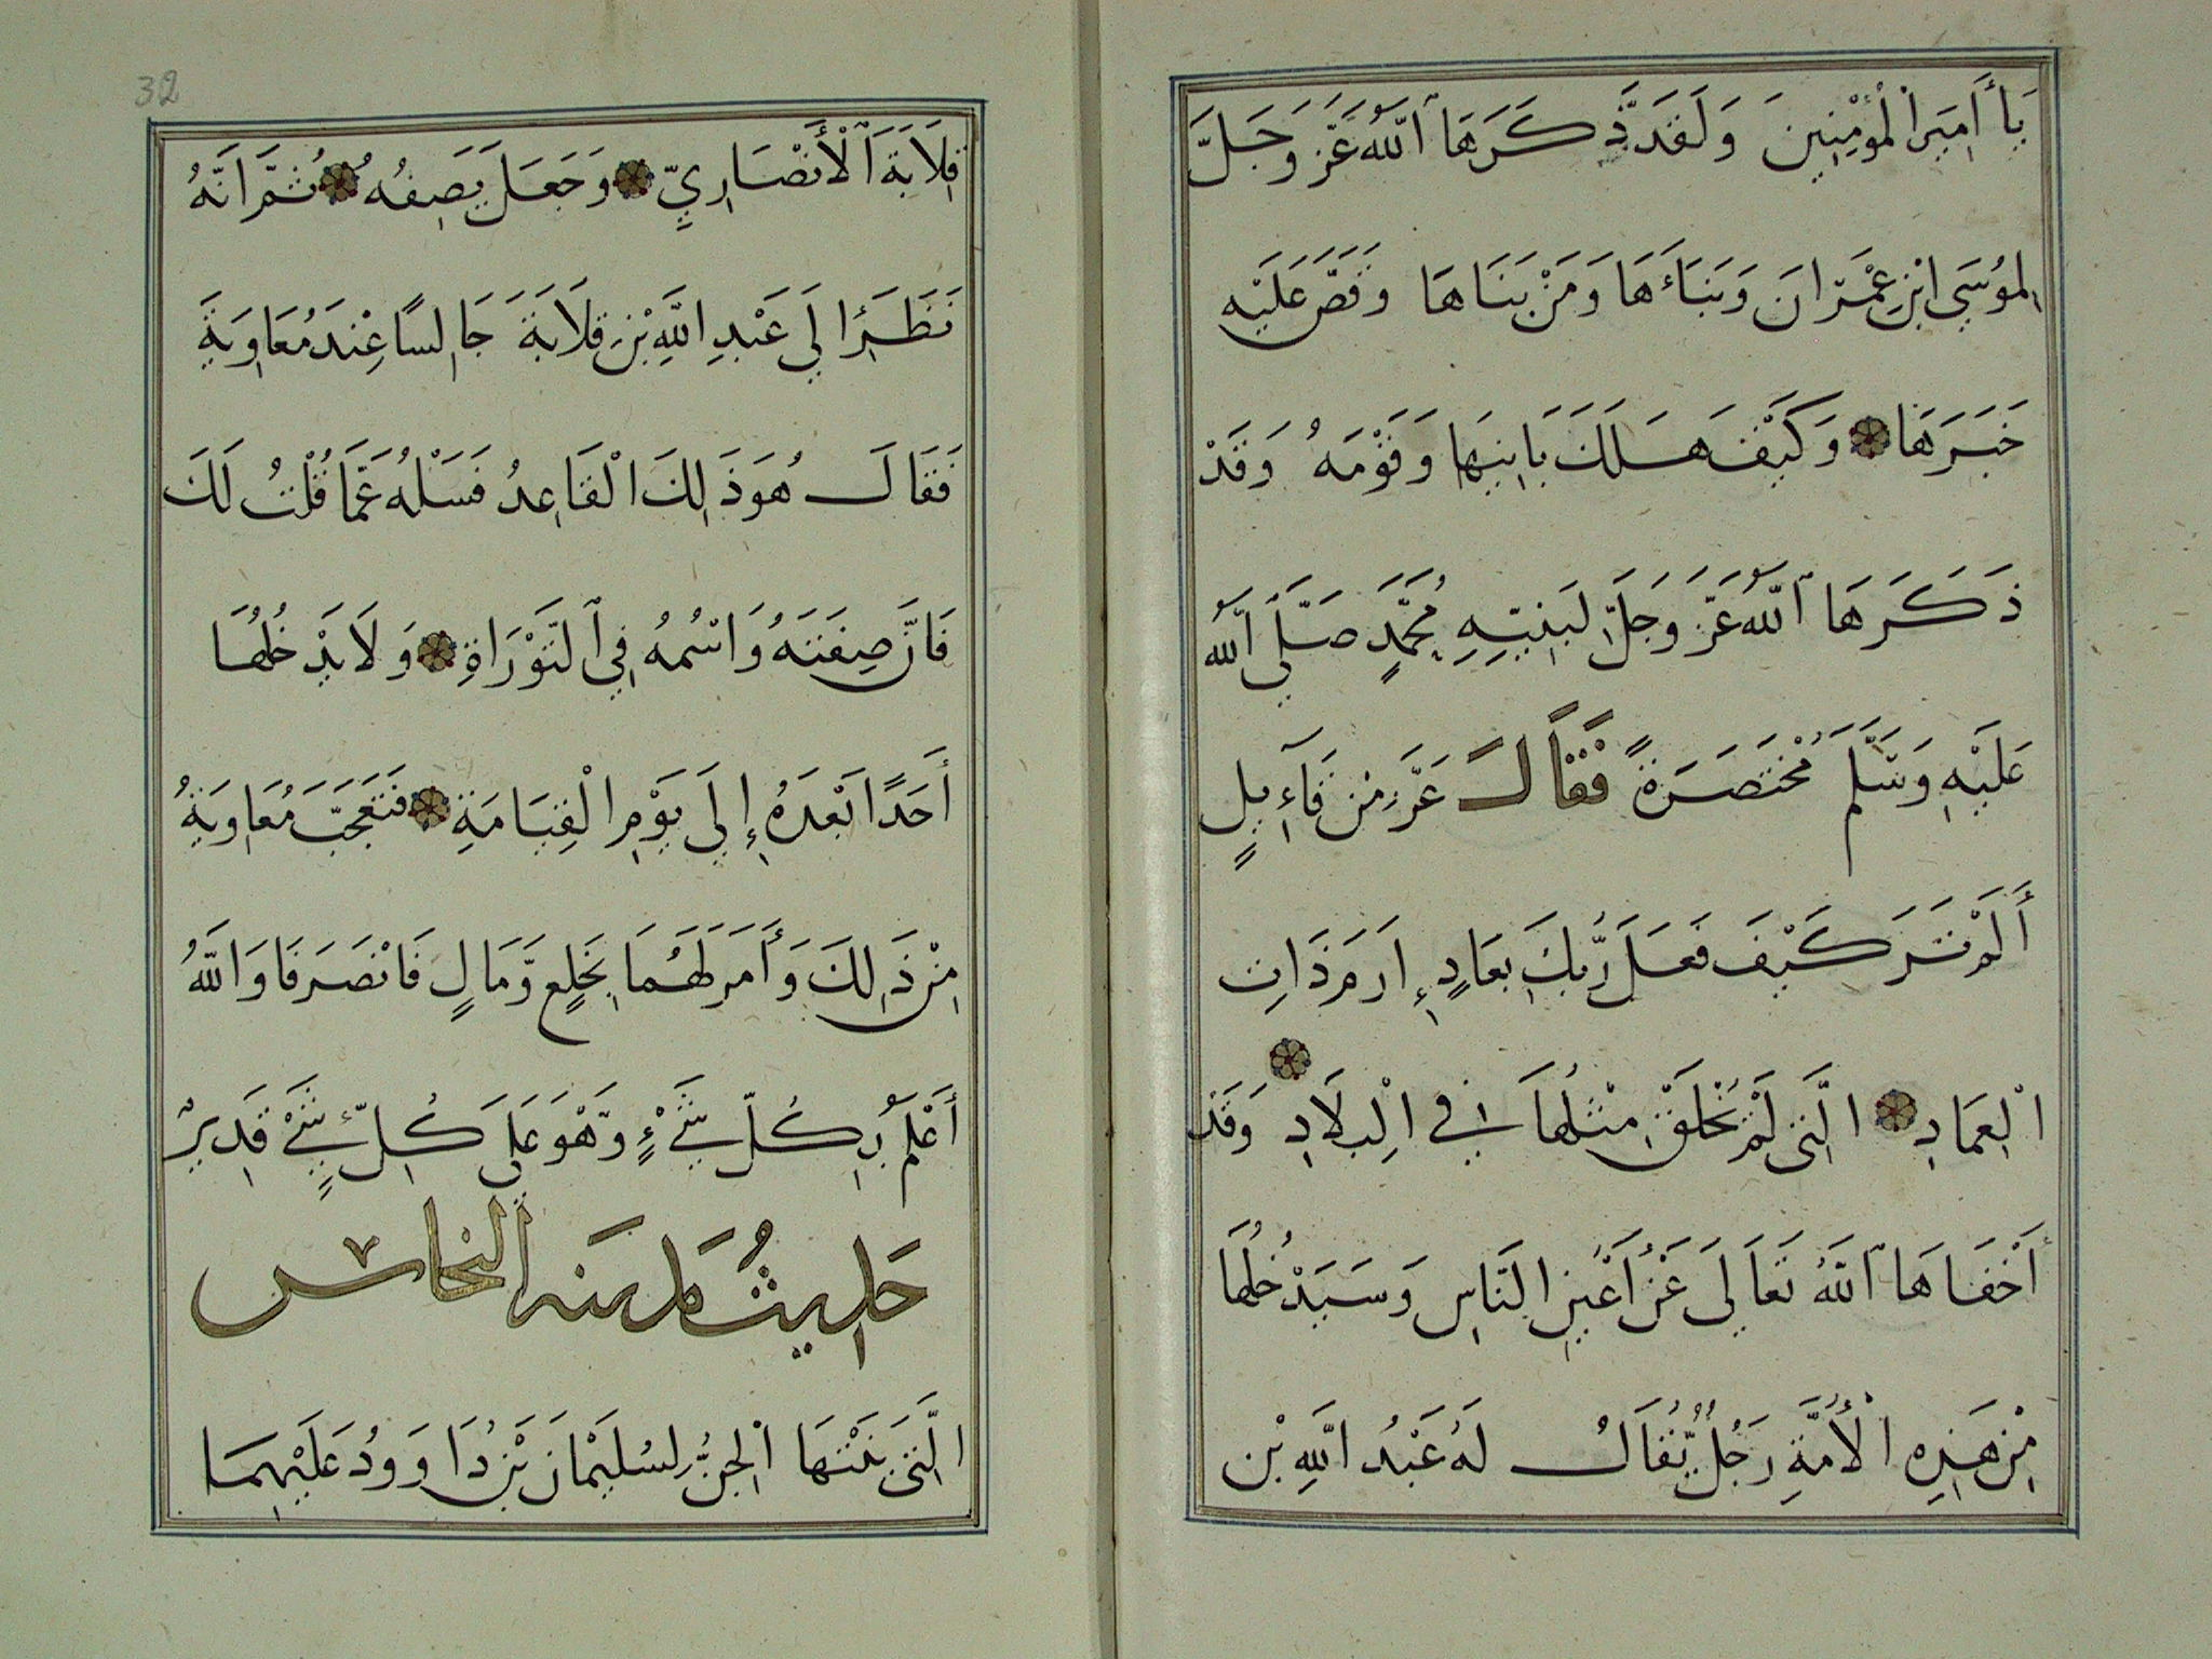 يَا أَمِيرَ الْمُؤْمِنِينَ وَلَقَدْ ذَّكَرَهَا اللّٰهُ عَزَّ وَجَلَّ
لِمُوسَى ابْنِ عِمْرَانَ وَبَنَاءَهَا وَمَنْ بَنَاهَا وَقَصَّ عَلَيْهِ
خَبَرَهَا وَكَيْفَ هَلَكَ بَانِيهَا وَقَوْمَهُ وَقَدْ
ذَكَرَهَا اللّٰهُ عَزَّ وَجَلَّ لِنَبِيِّهِ مُحَمَّدٍ صَلَّى اللّٰهُ
عَلَيْهِ وَسَلَّمَ مُخْتَصَرَةً فَقَالَ عَزَّ مِنْ قَآئِلٍ
أَلَمْ تَرَ كَيْفَ فَعَلَ رَبُّكَ بِعَادٍ إِرَمَ ذَاتِ
الْعِمَادِ الَّتِي لَمْ يُخْلَقْ مِثْلُهَا فِي الْبِلَادِ وَقَدْ
أَخْفَاهَا اللّٰهُ تَعَالَى عَنْ أَعْيُنِ النَّاسِ وَسَيَدْخُلُهَا
مِنْ هَذِهِ الْأُمَّةِ رَجُلٌ يُّقَالُ لَهُ عَبْدُ اللَّهِ بْنِ
قِلَابَةَ الْأَنْصَارِيِّ وَجَعَلَ يَصِفُهُ ثُمَّ اَنَّهُ
نَظَرَ إِلَى عَبْدِ اللَّهِ بْنِ قِلَابَةَ جَالِسًا عِنْدَ مُعَاوِيَةَ
فَقَالَ هُوَ ذَلِكَ الْقَاعِدُ فَسَلْهُ عَمَّا قُلْتُ لَكَ
فَاِنَّ صِفَتَهُ وَاسْمُهُ فِي التَّوْرَاةِ وَلَا يَدْخُلُهَا
أَحَدًا بَعْدَهُ إِلَى يَوْمِ الْقِيَامَةِ فَتَعَجَّبَ مُعَاوِيَةُ
مِنْ ذَلِكَ وَأَمَرَ لَهُمَا بِخَلْعٍ وَّمَالٍ فَانْصَرَفَا وَاللَّهُ
أَعْلَمُ بِكُلِّ شَيْءٍ وَّهْوَ عَلَى كُلِّ شَيْءٍ قَدِيرٌ
حَدِيثُ مَدِينَه النحاس
الَّتِي بَنَتْهَا الْجِنُّ لِسُلَيْمَانَ بْنِ دَاوُودَ عَلَيْهِمَا
32